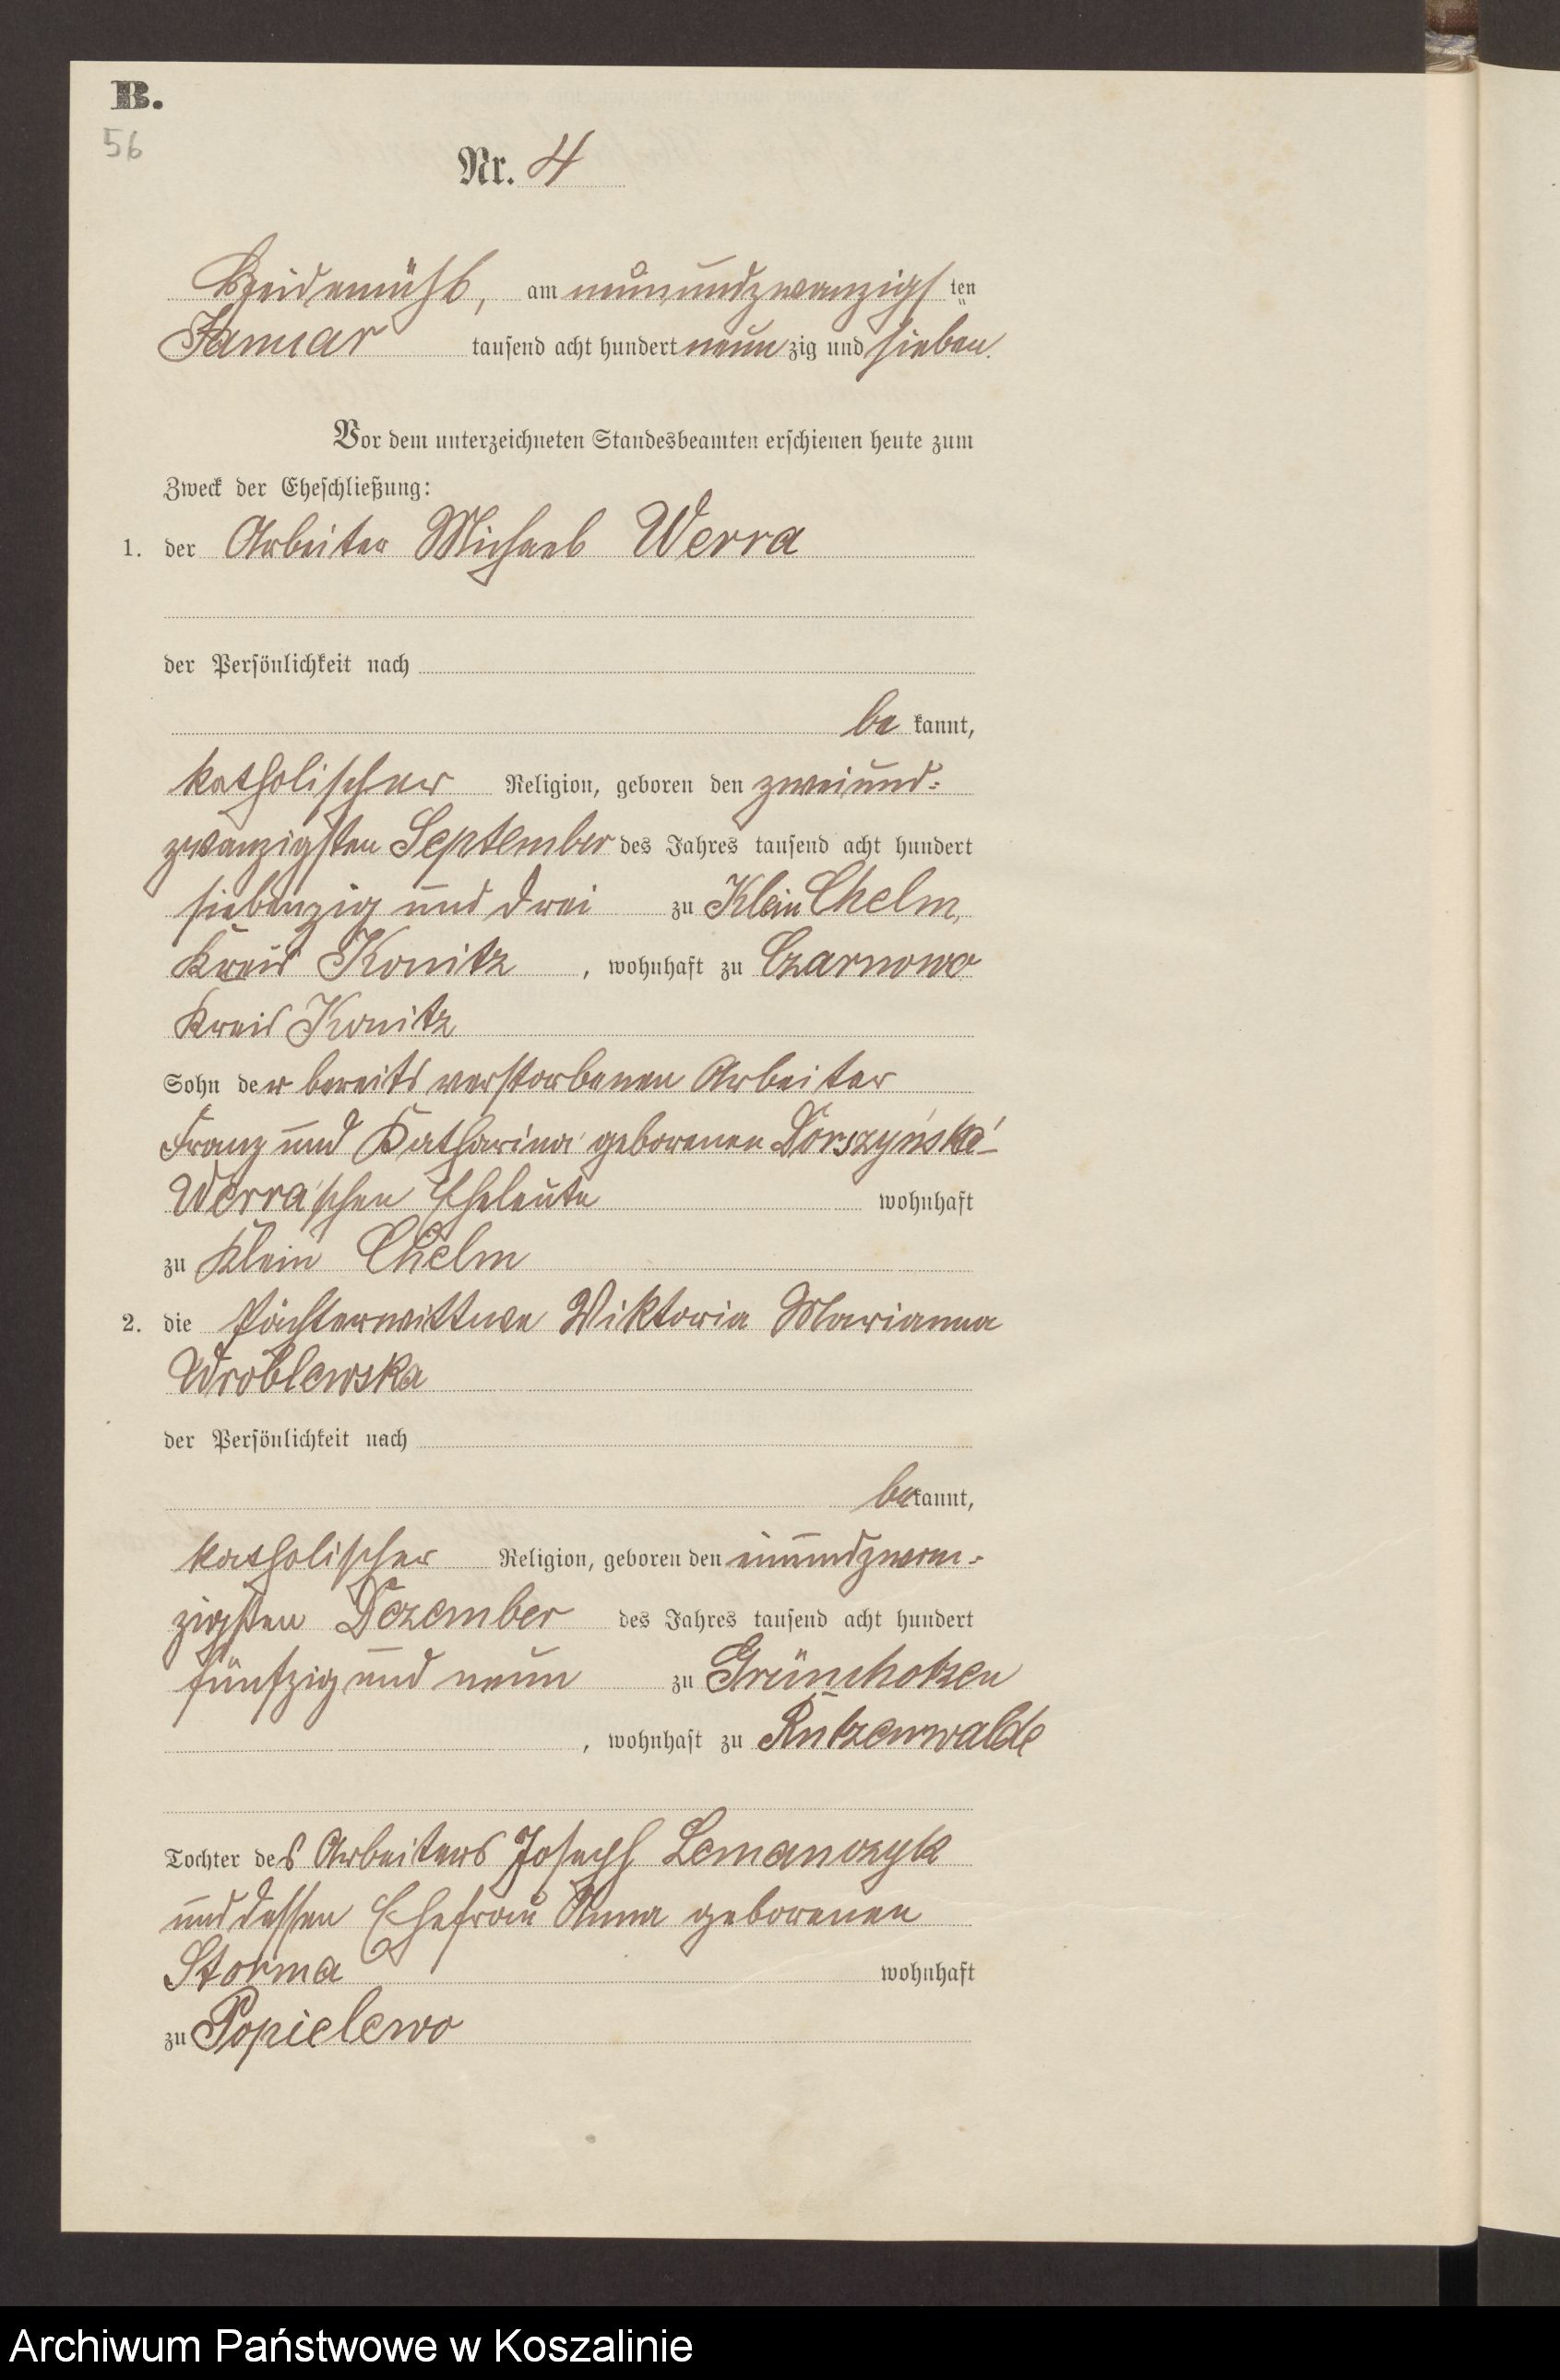 B.
56
Nr. 4
Heidemühl, am neunundzwanzigsten
Januar tausend acht hundert neunzig und sieben.
Vor dem unterzeichneten Standesbeamten erschienen heute zum
Zweck der Eheschließung:
1. der Arbeiter Michael Werra
der Persönlichkeit nach
bekannt,
katholischer Religion, geboren den zweiund-
zwanzigsten September des Jahres tausend acht hundert
siebenzig und drei zu Klein Chelm,
Kreis Konitz, wohnhaft zu Czarnowo
Kreis Konitz
Sohn der bereits verstorbenen Arbeiter
Franz und Katharina geborenen
Werra'schen Eheleute wohnhaft
zu Klein Chelm
2. die Pächterwittwe Viktoria Marianna
Wroblewska
der Persönlichkeit nach
bekannt,
katholischer Religion, geboren den einundzwan-
zigsten Dezember des Jahres tausend acht hundert
fünfzig und neun zu Grünchotzen
, wohnhaft zu
Tochter des Arbeiters Joseph Lemanczyk
und dessen Ehefrau Anna geborenen
wohnhaft
zu Popielewo
Archiwum Państwowe w Koszalinie